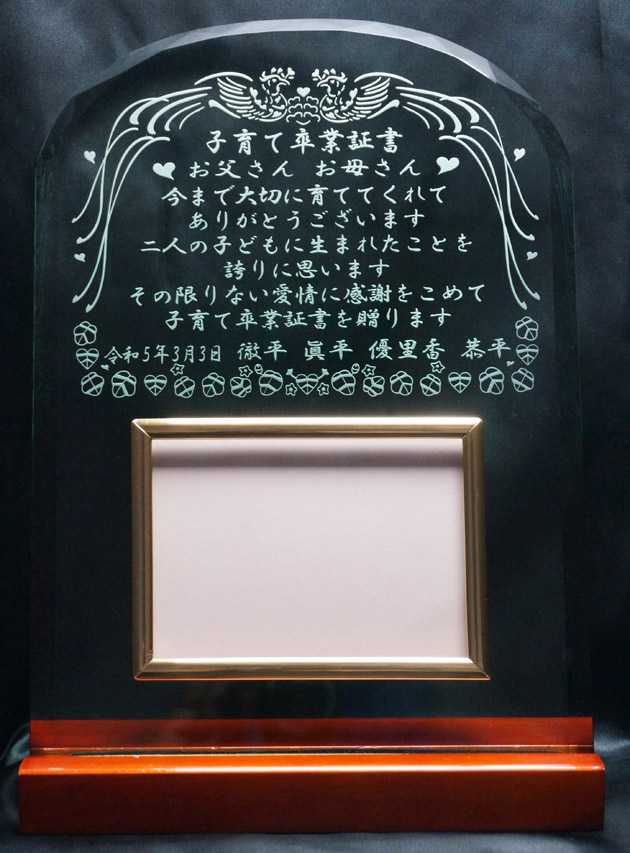 子育て卒業証書
お父さん お母さん
今まで大切に育ててくれて
ありがとうございます
二人の子どもに生まれたことを
誇りに思います
その限りない愛情に感謝をこめて
子育て卒業証書を贈ります
令和5年3月3日 徹平 眞平 優里香 恭平